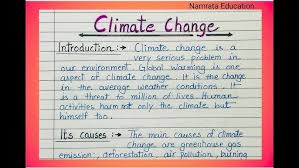 Namrata Education
Climate Change
Introduction :→ Climate change is a
very serious problem in
our environment. Global warming is one
aspect of climate change. It is the change
in the average weather conditions. It
is a threat to million of lives. Human
activities harm not only the climate but
himself too.
Its causes :→ The main causes of climate
change are greenhouse gas
emission, deforestation, air pollution, burning